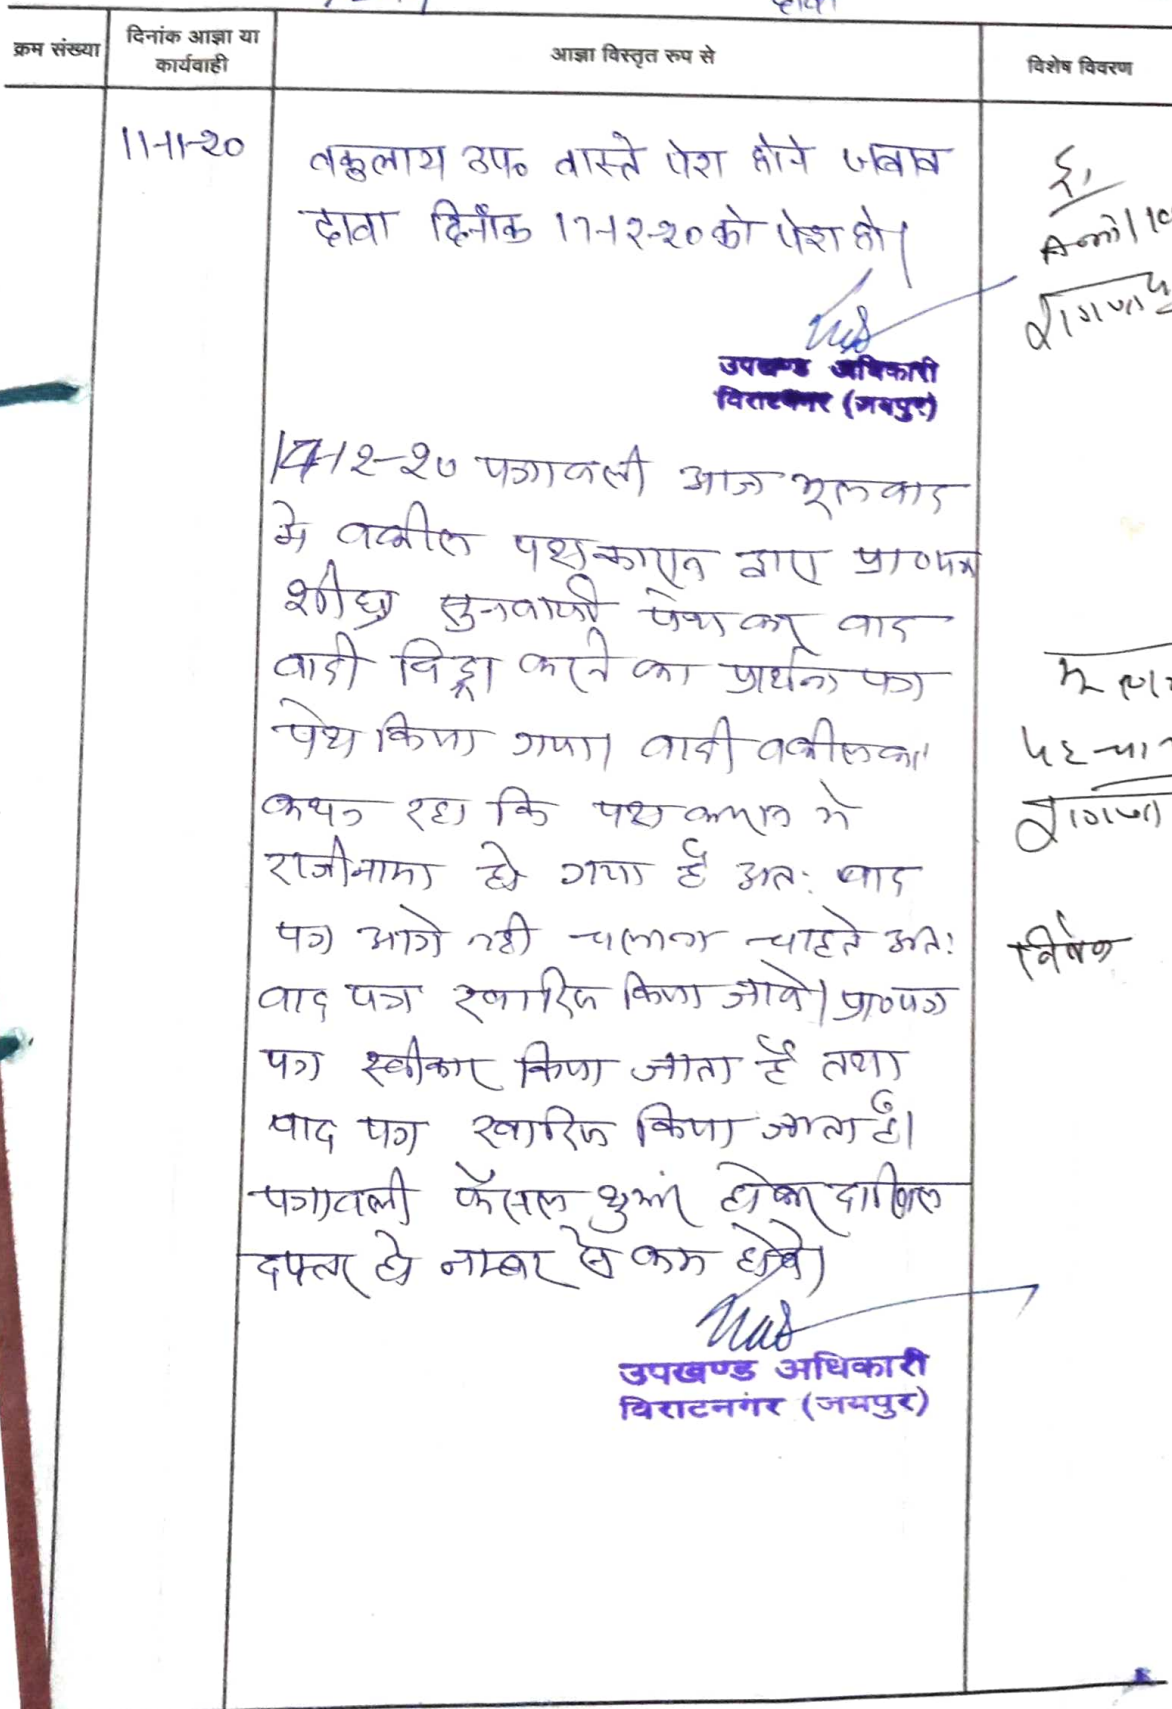 क्रम संख्या
दिनांक आज्ञा या
कार्यवाही
आज्ञा विस्तृत रुप से
विशेष विवरण
11-11-20
वकुलाय उप० वास्ते पेश होने जबाब
दावा दिनाँक 17-12-20 को पेश हो।
उपखण्ड अधिकारी
विराटनगर (जयपुर)
12-20 पत्रावली आज मूलवाद
मे वकील पक्षकारान द्वारा प्रा०पत्र
शीघ्र सुनवायी पेश कर वाद
वादी विड्रा करने का प्रार्थना पत्र
पेश किया गया। वादी वकील का
कथन रहा कि पक्षकारान मे
राजीनामा हो गया है अतः वाद
पत्र आगे नही चलाना चाहते अतः
वाद पत्र खारिज किया जावे। प्रा०पत्र
पत्र स्वीकार किया जाता है तथा
वाद पत्र खारिज किया जाता है।
पत्रावली फैसल शुमार होकर दाखिल
दफ्तर हो नम्बर से कम होवे।
उपखण्ड अधिकारी
विराटनगर (जयपुर)